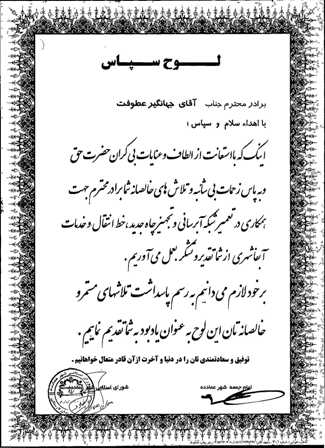 لوح سپاس
برادر محترم جناب آقای جهانگیر عطوفت
با اهداء سلام و سپاس ؛
اینک که با استعانت از الطاف و عنایات بی کران حضرت حق
و به پاس زحمات بی شائبه و تلاش های خالصانه شما برادر محترم جهت
همکاری در تعمیر شبکه آبرسانی و تجهیز چاه جدید، خط انتقال و خدمات
آبفا شهری از شما تقدیر و تشکر بعمل می آوریم.
بر خود لازم می دانیم به رسم پاسداشت تلاشهای مستمر و
خالصانه تان این لوح به عنوان یادبود به شما تقدیم نماییم.
توفیق و سعادتمندی تان را در دنیا و آخرت از آن قادر متعال خواهانیم.
امام جمعه شهر
شورای اسلامی